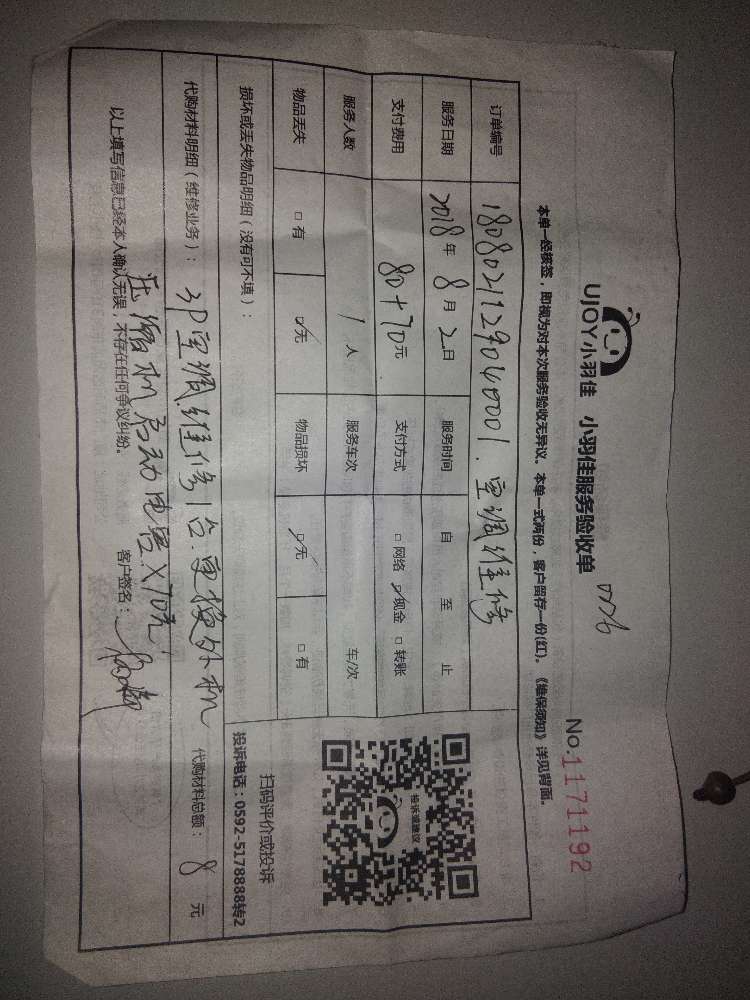 UJOY小羽佳 小羽佳服务验收单
No.1171192
本单一经核签，即视为对本次服务验收无异议。本单一式两份，客户留存一份(红)。《维保须知》详见背面。
订单编号 1808021129040001. 空调维修
服务日期 2018年 8月 2日 服务时间 自 至 止
支付费用 80+70元 支付方式 □网络 ☑现金 □转账
服务人数 1人 服务车次 车/次
物品丢失 □有 ☑无 物品损坏 ☑无 □有
损坏或丢失物品明细（没有可不填）：
投诉建议
扫码评价或投诉
投诉电话：0592-5178888转2
代购材料明细（维修业务）：3P空调维修1台.更换外机
压缩机启动电容×70元
代购材料总额： 元
以上填写信息已经本人确认无误，不存在任何争议纠纷。 客户签名：